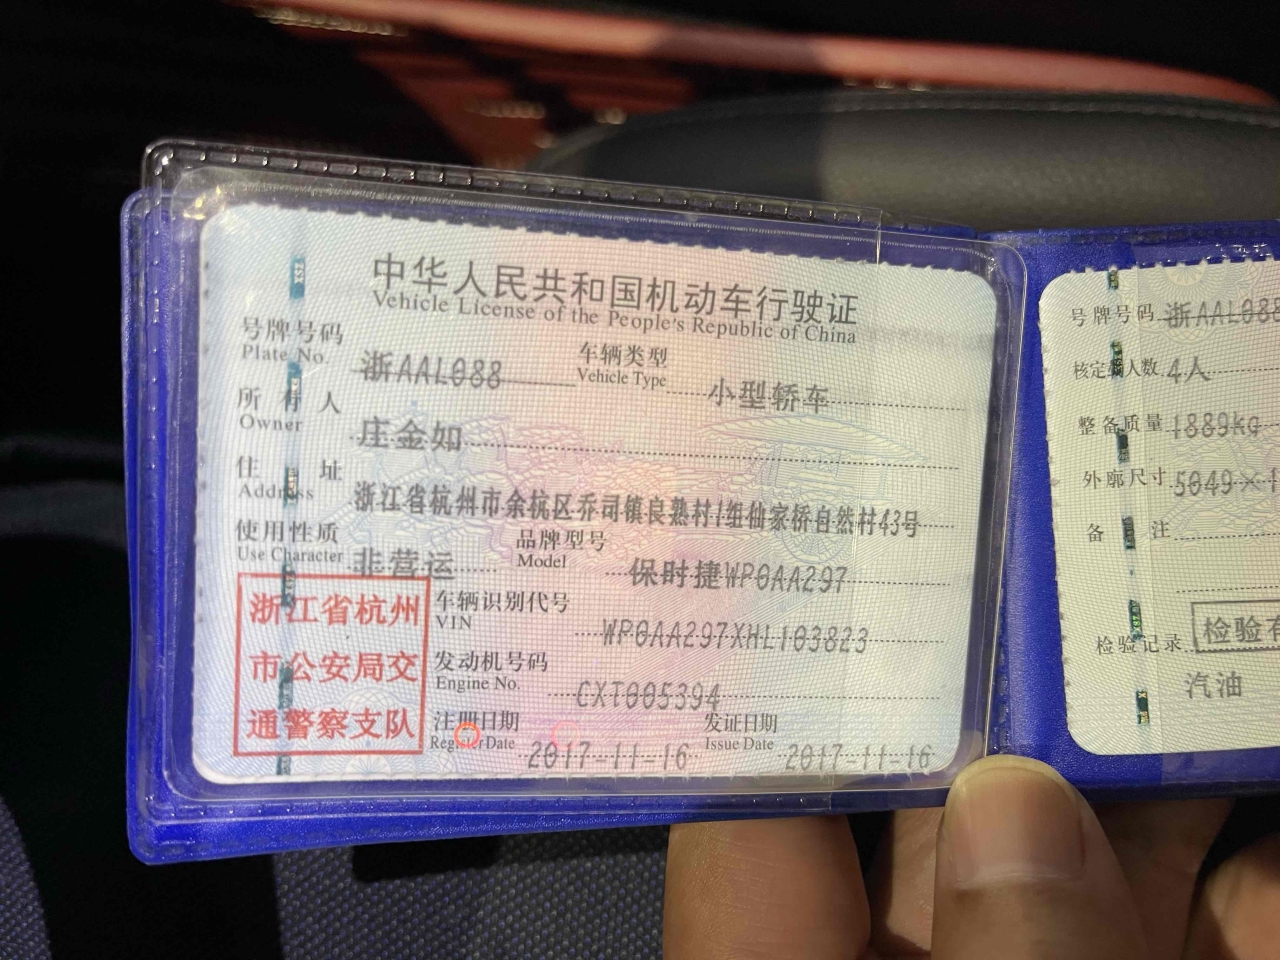 中华人民共和国机动车行驶证
Vehicle License of the People's Republic of China
号牌号码 浙AAL088 车辆类型 小型轿车
Plate No. Vehicle Type
所有人 庄金如
Owner
住址 浙江省杭州市余杭区乔司镇良熟村1组仙家桥自然村43号
Address
使用性质 非营运 品牌型号 保时捷WP0AA297
Use Character Model
浙江省杭州
市公安局交
通警察支队
车辆识别代号 WP0AA297XHL103823
VIN
发动机号码 CXT005394
Engine No.
注册日期 2017-11-16 发证日期 2017-11-16
Register Date Issue Date
号牌号码 浙AAL088
核定载人数 4人
整备质量 1889kg
外廓尺寸 5049×1
备注
检验记录 检验有
汽油